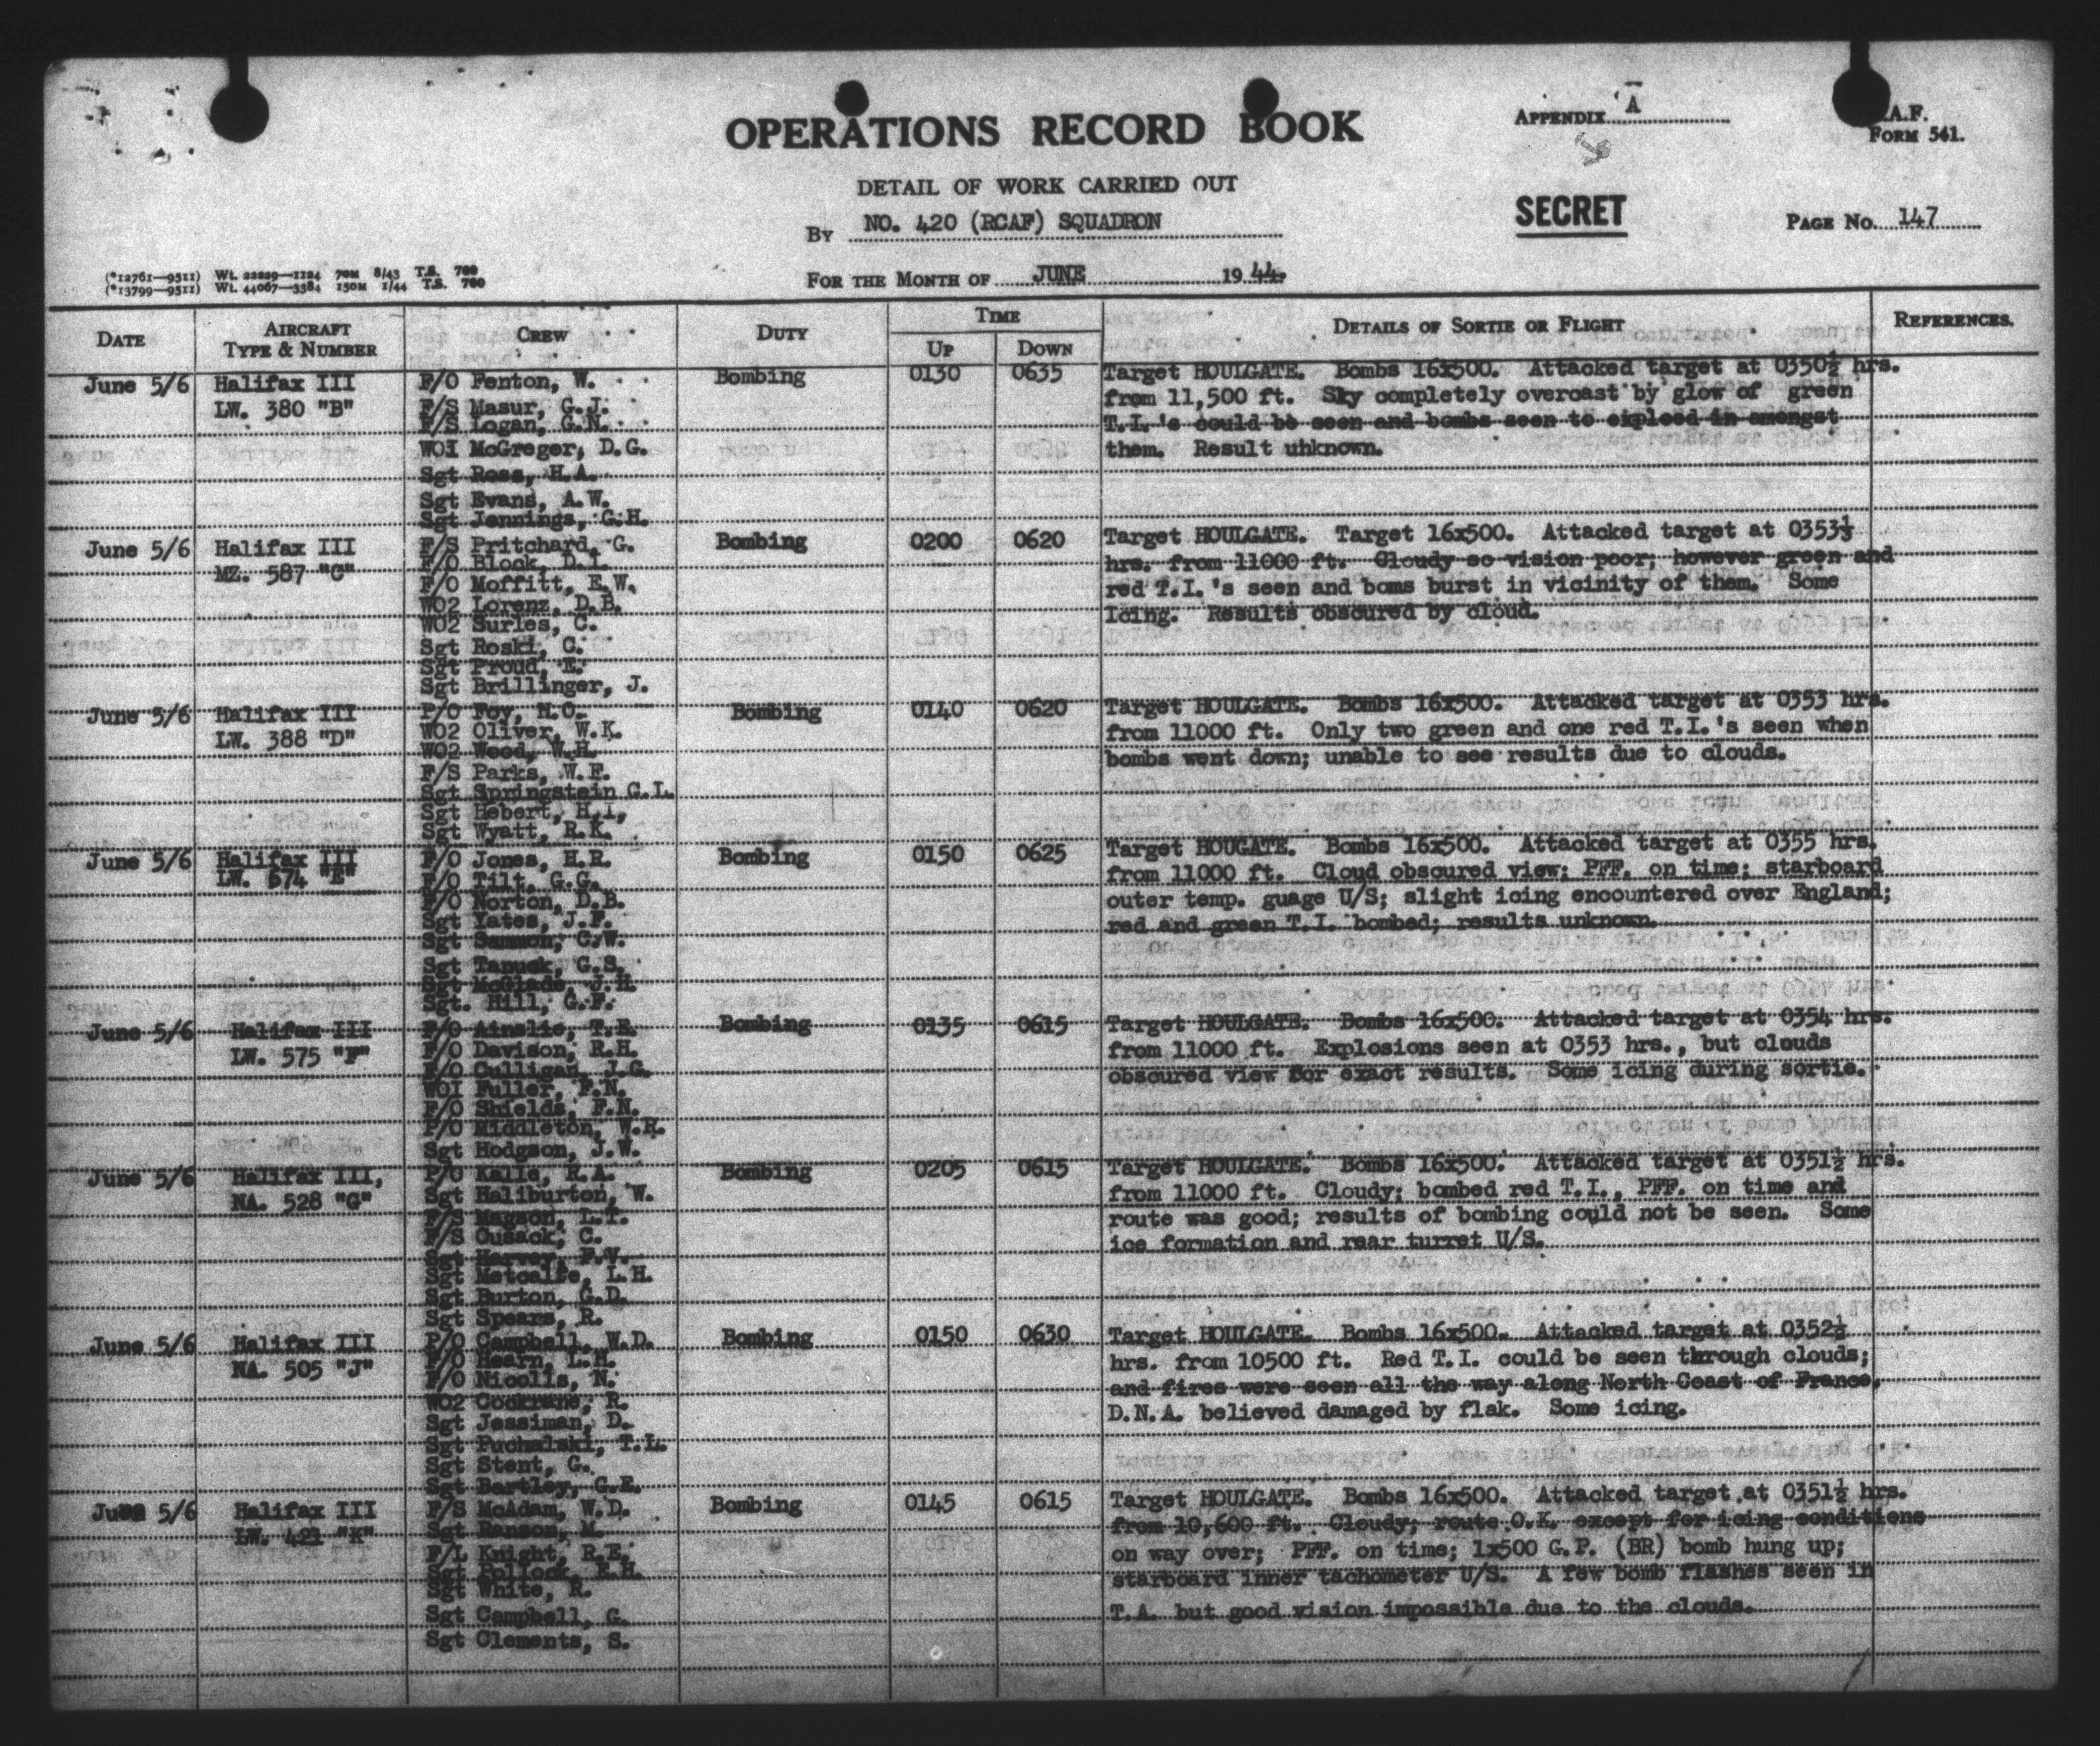 OPERATIONS RECORD BOOK
APPENDIX A
A.F.
FORM 541.
DETAIL OF WORK CARRIED OUT
SECRET
By NO. 420 (RCAF) SQUADRON
PAGE No. 147
(*12761—9511) Wt. 22229—1124 70M 8/43 T.S. 700
(*13799—9511) Wt. 44067—3384 150M 1/44 T.S. 700
FOR THE MONTH OF JUNE 1944.
DATE
AIRCRAFT
TYPE & NUMBER
CREW
DUTY
TIME
UP
DOWN
DETAILS OF SORTIE OR FLIGHT
REFERENCES.
June 5/6
Halifax III
LW. 380 "B"
F/O Fenton, W.
F/S Masur, G.J.
F/S Logan, G.N.
WO1 McGreger, D.G.
Sgt Ross, H.A.
Sgt Evans, A.W.
Sgt Jennings, G.H.
Bombing
0130
0635
Target HOULGATE. Bombs 16x500. Attacked target at 0350½ hrs.
from 11,500 ft. Sky completely overcast by glow of green
T.I.'s could be seen and bombs seen to explood in amongst
them. Result uhknown.
June 5/6
Halifax III
MZ. 587 "C"
F/S Pritchard, G.
F/O Block, D.I.
F/O Moffitt, E.W.
WO2 Lorenz, D.B.
WO2 Surles, C.
Sgt Roski, C.
Sgt Proud, E.
Sgt Brillinger, J.
Bombing
0200
0620
Target HOULGATE. Target 16x500. Attacked target at 0353½
hrs. from 11000 ft. Cloudy so vision poor; however green and
red T.I.'s seen and boms burst in vicinity of them. Some
Icing. Results obscured by cloud.
June 5/6
Halifax III
LW. 388 "D"
P/O Foy, N.O.
WO2 Oliver, W.K.
WO2 Wood, W.H.
F/S Parks, W.F.
Sgt Springstein G.L.
Sgt Hebert, H.I,
Sgt Wyatt, R.K.
Bombing
0140
0620
Target HOULGATE. Bombs 16x500. Attacked target at 0353 hrs.
from 11000 ft. Only two green and one red T.I.'s seen when
bombs went down; unable to see results due to clouds.
June 5/6
Halifax III
LW. 674 "E"
F/O Jones, H.R.
F/O Tilt, G.G.
F/O Norton, D.B.
Sgt Yates, J.F.
Sgt Sammon, C.W.
Sgt Tanuck, G.S.
Sgt McGlade, J.H.
Sgt. Hill, G.F.
Bombing
0150
0625
Target HOUGATE. Bombs 16x500. Attacked target at 0355 hrs.
from 11000 ft. Cloud obscured view; PFF. on time; starboard
outer temp. guage U/S; slight icing encountered over England;
red and green T.I. bombed; results unknown.
June 5/6
Halifax III
LW. 575 "F"
F/O Ainslie, T.E.
F/O Davison, R.H.
F/O Culligan, J.G.
WO1 Fuller, F.N.
F/O Shields, F.N.
P/O Middleton, W.R.
Sgt Hodgson, J.W.
Bombing
0135
0615
Target HOULGATE. Bombs 16x500. Attacked target at 0354 hrs.
from 11000 ft. Explosions seen at 0353 hrs., but clouds
obscured view for exact results. Some icing during sortie.
June 5/6
Halifax III,
NA. 528 "G"
P/O Kalle, R.A.
Sgt Haliburton, W.
F/S Magson, L.I.
F/S Cusack, C.
Sgt Harvey, F.V.
Sgt Metcalfe, L.H.
Sgt Burton, G.D.
Sgt Spears, R.
Bombing
0205
0615
Target HOULGATE. Bombs 16x500. Attacked target at 0351½ hrs.
from 11000 ft. Cloudy; bombed red T.I., PFF. on time and
route was good; results of bombing could not be seen. Some
ice formation and rear turret U/S.
June 5/6
Halifax III
NA. 505 "J"
P/O Campbell, W.D.
F/O Hearn, L.H.
F/O Nicolls, N.
WO2 Cockrane, R.
Sgt Jessiman, D.
Sgt Puchalski, T.L.
Sgt Stent, G.
Sgt Bartley, G.E.
Bombing
0150
0630
Target HOULGATE. Bombs 16x500. Attacked target at 0352½
hrs. from 10500 ft. Red T.I. could be seen through clouds;
and fires were seen all the way along North Coast of France.
D.N.A. believed damaged by flak. Some icing.
June 5/6
Halifax III
LW. 421 "K"
F/S McAdam, W.D.
Sgt Ranson, M.
F/L Knight, R.E.
Sgt Pollock, E.H.
Sgt White, R.
Sgt Campbell, G.
Sgt Clements, S.
Bombing
0145
0615
Target HOULGATE. Bombs 16x500. Attacked target at 0351½ hrs.
from 10,600 ft. Cloudy; route O.K. except for icing conditions
on way over; PFF. on time; 1x500 G.P. (BR) bomb hung up;
starboard inner tachometer U/S. A few bomb flashes seen in
T.A. but good vision impossible due to the clouds.